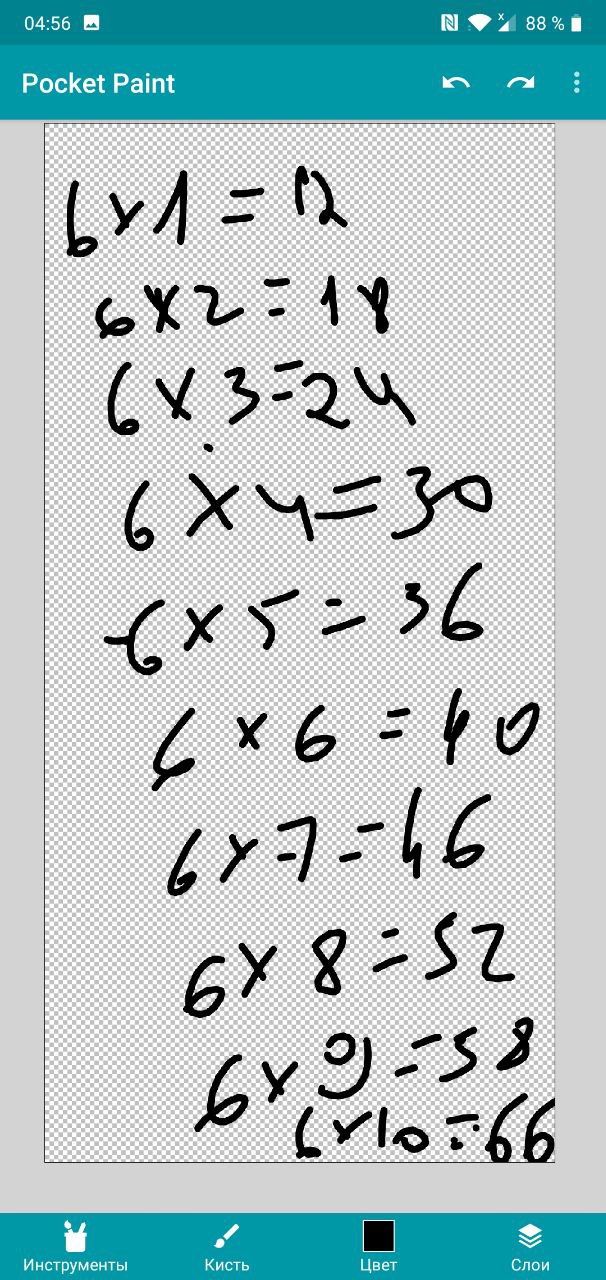 04:56 88 %
Pocket Paint
6x1=12
6x2=18
6x3=24
6x4=30
6x5=36
6x6=40
6x7=46
6x8=52
6x9=58
6x10=66
Инструменты Кисть Цвет Слои